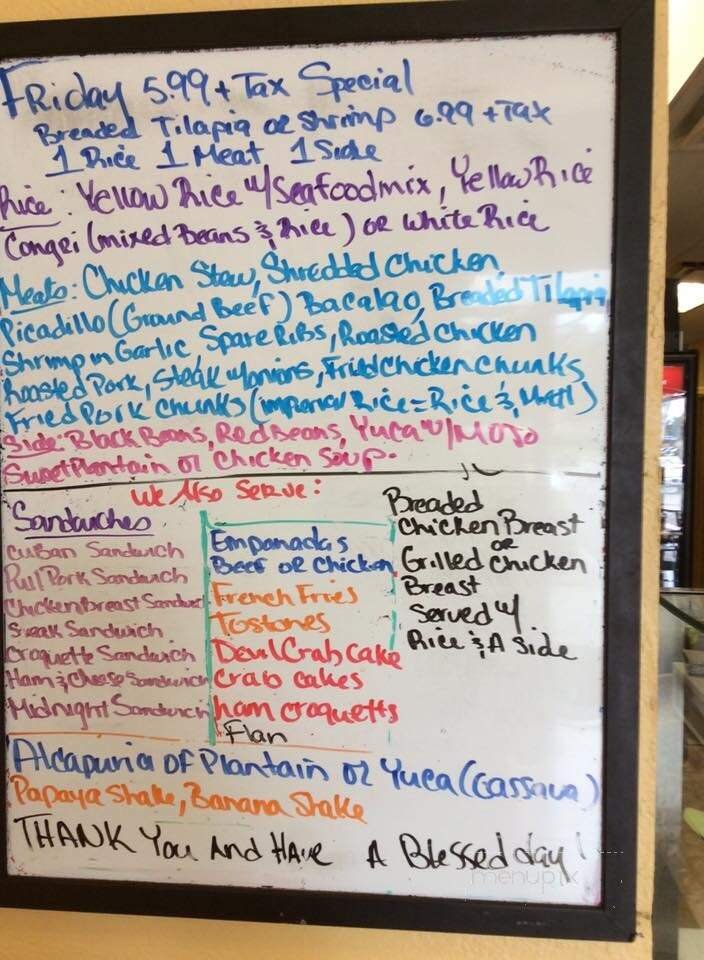 FRiday 5.99 + Tax Special
Breaded Tilapia or Shrimp 6.99 + Tax
1 Rice 1 Meat 1 Side
Rice: Yellow Rice w/Seafoodmix, Yellow Rice
Congri (mixed Beans & Rice) or white Rice
Meats: Chicken Stew, Shredded Chicken
Picadillo (Ground Beef) Bacalao, Breaded Tilapia
Shrimp in Garlic, Spare Ribs, Roasted Chicken
Roasted Pork, Steak w/onions, Fried Chicken Chunks
Fried Pork Chunks (imperial Rice = Rice & Meat)
Side: Black Beans, Red Beans, Yuca w/ Mojo
Sweet Plantain or Chicken Soup.
We Also Serve:
Sandwiches
Cuban Sandwich
Pull Pork Sandwich
Chicken Breast Sandwich
Steak Sandwich
Croquette Sandwich
Ham & Cheese Sandwich
Midnight Sandwich
Empanadas
Beef or Chicken
French Fries
Tostones
Devil Crab Cake
Crab cakes
ham croquetts
Flan
Breaded
Chicken Breast
or
Grilled Chicken
Breast
Served w/
Rice & A Side
Alcapuria of Plantain or Yuca (Cassava)
Papaya Shake, Banana Shake
THANK You And Have A Blessed day!
menupix